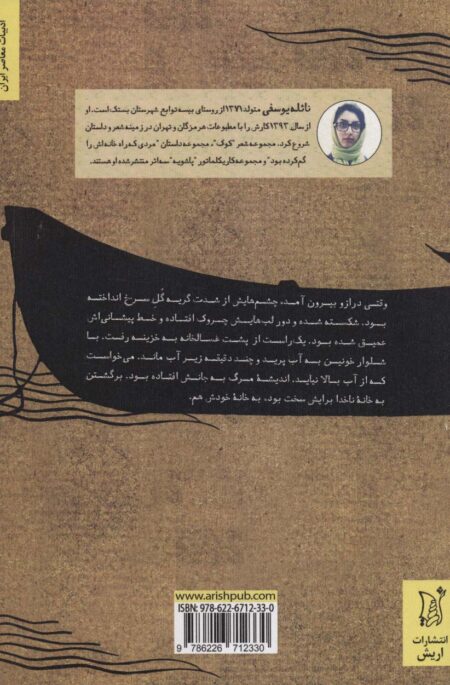 ادبیات معاصر ایران
نائله یوسفی متولد ۱۳۷۱ از روستای بیسه توابع شهرستان بستک است. او
از سال ۱۳۹۳ کارش را با مطبوعات هرمزگان و تهران در زمینه شعر و داستان
شروع کرد. مجموعه شعر "کوک"، مجموعه داستان "مردی که راه خانه‌اش را
گم کرده بود" و مجموعه کاریکلماتور "پاشویه" سه اثر منتشر شده او هستند.
وقتی درازو بیرون آمد، چشم‌هایش از شدت گریه گُل سرخ انداخته
بود. شکسته شده و دور لب‌هایش چروک افتاده و خط پیشانی‌اش
عمیق شده بود. یک‌راست از پشت غسالخانه به خزینه رفت. با
شلوار خونین به آب پرید و چند دقیقه زیر آب ماند. می‌خواست
که از آب بالا نیاید. اندیشهٔ مرگ به جانش افتاده بود. برگشتن
به خانهٔ ناخدا برایش سخت بود، به خانهٔ خودش هم.
www.arishpub.com
ISBN: 978-622-6712-33-0
9 786226 712330
انتشارات
اریش